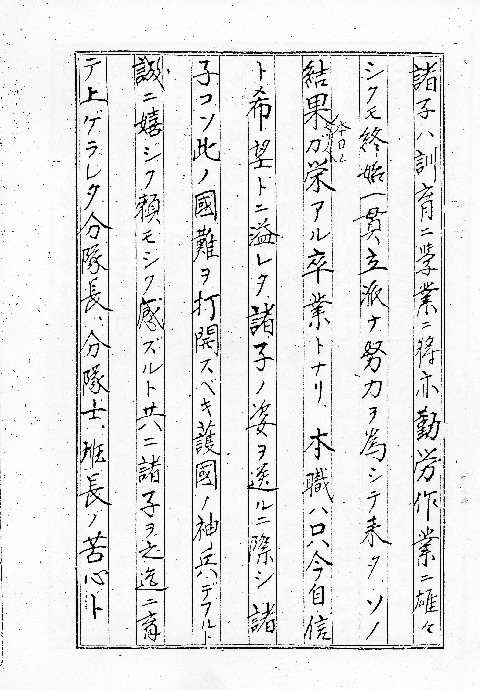 諸子ハ訓育ニ學業ニ將亦勤労作業ニ雄々
シクモ終始一貫、立派ナ努力ヲ為シテ来タ、ソノ
結果ガ栄アル卒業トナリ、本職ハ只今自信
本日ノ
ト希望トニ溢レタ諸子ノ姿ヲ送ルニ際シ諸
子コソ此ノ國難ヲ打開スベキ護國ノ神兵デアルト
誠ニ嬉シク頼モシク感ズルト共ニ諸子ヲ之迄ニ育
テ上ゲラレタ分隊長、分隊士、班長ノ苦心ト